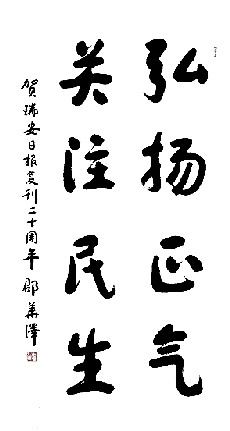 弘扬正气
关注民生
贺瑞安日报复刊二十周年 邵华泽